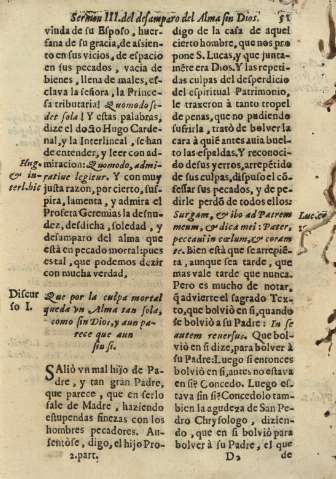 Sermon III. del desamparo del Alma sin Dios. 51
viuda de su Esposo, huer-
fana de su gracia, de assiento
en sus vicios, de espacio
en sus pecados, vacia de
bienes, llena de males, es-
clava la señora, la Prince-
sa tributaria! Quomodo si-
det sola! Y estas palabras,
dize el docto Hugo Carde-
nal, y la Interlineal, se han
de entender, y leer con ad-
miracion: Quomodo, admi-
rative legitur. Y con muy
justa razon, por cierto, sus-
pira, lamenta, y admira el
Profeta Geremias la desnu-
dez, desdicha, soledad, y
desamparo del alma que
està en pecado mortal: pues
es tal, que podemos dezir
con mucha verdad,
Hug.
& in-
terl. hic
Discur
so I.
Que por la culpa mortal
queda vn Alma tan sola,
como sin Dios, y aun pa-
rece que aun
sin si.
SAliò vn mal hijo de Pa-
dre, y tan gran Padre,
que parece, que en serlo
sale de Madre, haziendo
estupendas finezas con los
hombres pecadores. Au-
sentòse, digo, el hijo Pro-
2. part.
digo de la casa de aquel
cierto hombre, que nos pro
pone S. Lucas, y que junta-
mēte era Dios. Y las repeti-
das culpas del desperdicio
del espiritual Patrimonio,
le traxeron à tanto tropel
de penas, que no pudiendo
sufrirla, tratò de bolver la
cara à quiē antes auia buel-
to las espaldas. Y reconoci-
do de sus yerros, arrepētido
de sus culpas, dispuso el cō-
fessar sus pecados, y de pe-
dirle perdō de todos ellos:
Surgam, & ibo ad Patrem
meum, & dica mei: Pater,
peccaui in cœlum, & coram
te. Bien està que se arrepiē-
ta, aunque sea tarde, que
mas vale tarde que nunca.
Pero es mucho de notar,
q̄ advierte el sagrado Tex-
to, que bolviò en si, quando
se bolviò a su Padre: In se
autem reuersus. Que bol-
viò en si dize, para bolver à
su Padre: Luego si entonces
bolviò en si, antes no estava
en si? Concedo. Luego es-
tava sin si? Concedolo tambien
la agudeza de San Pe-
dro Chrysologo, dizien-
do, que en si bolviò para
bolver à su Padre, el que
D2 de
Luc.